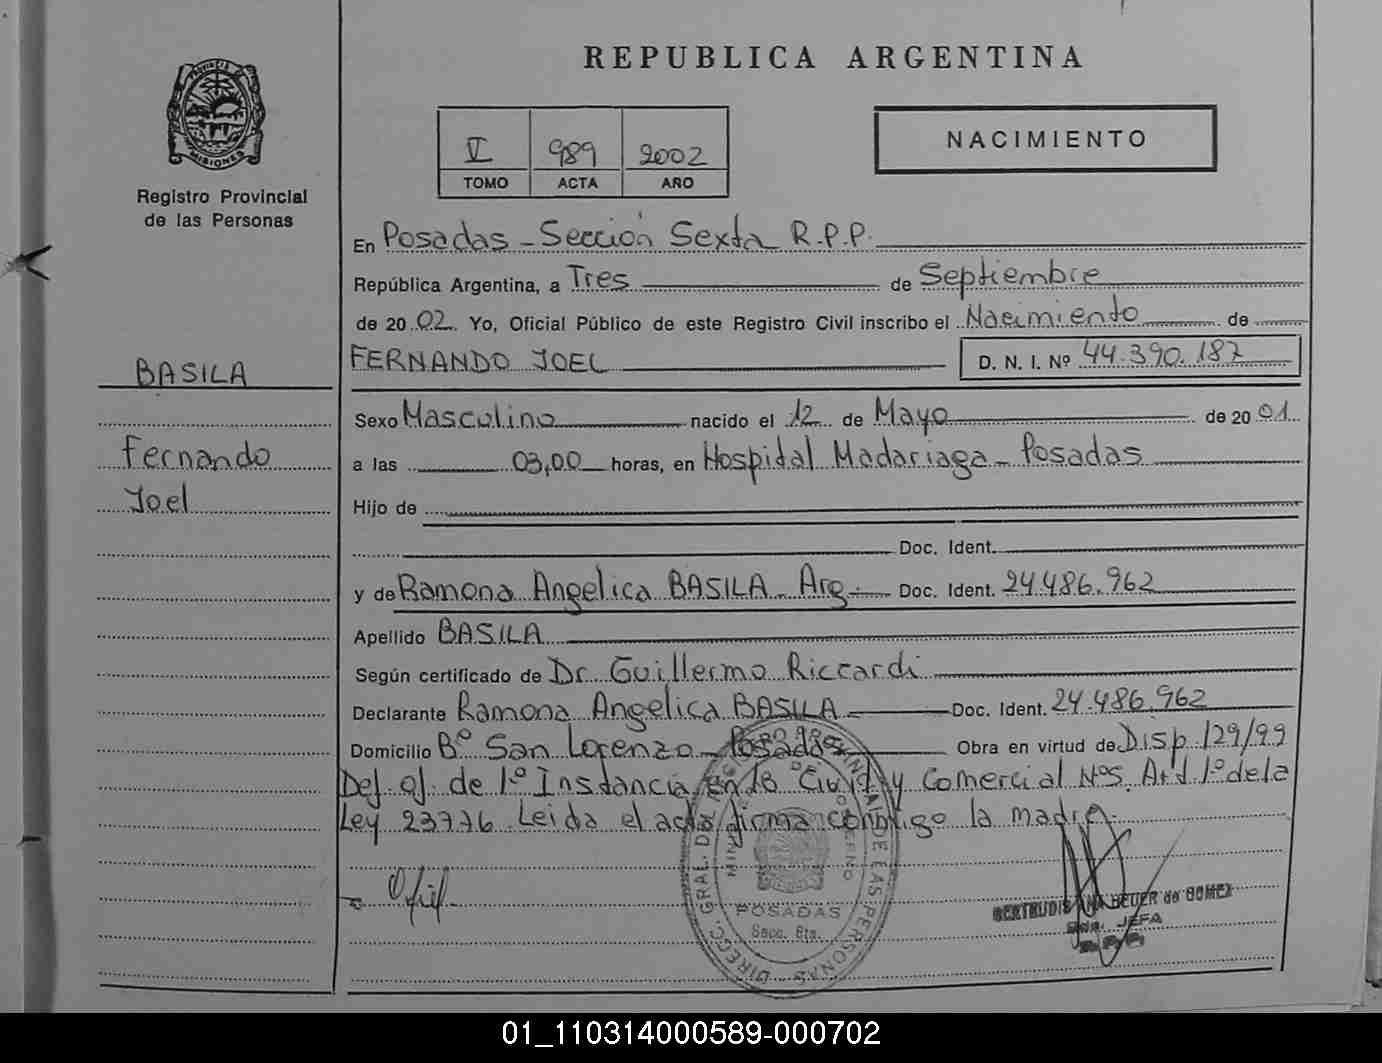 REPUBLICA ARGENTINA
PROVINCIA DE
MISIONES
Registro Provincial
de las Personas
V 989 2002
TOMO ACTA AÑO
NACIMIENTO
En Posadas - Sección Sexta R.P.P.
República Argentina, a Tres de Septiembre
de 20 02 Yo, Oficial Público de este Registro Civil inscribo el Nacimiento de
FERNANDO JOEL D. N. I. Nº 44.390.187
BASILA
Fernando
Joel
Sexo Masculino nacido el 12 de Mayo de 20 01
a las 03,00 horas, en Hospital Madariaga - Posadas
Hijo de
Doc. Ident.
y de Ramona Angelica BASILA - Arg. - Doc. Ident. 24.486.962
Apellido BASILA
Según certificado de Dr. Guillermo Riccardi
Declarante Ramona Angelica BASILA Doc. Ident. 24.486.962
Domicilio Bº San Lorenzo - Posadas Obra en virtud de Disp 129/99
Def. of. de 1º Instancia en lo Civil y Comercial Nº5. Art 1º de la
Ley 23776. Leida el acta firma conmigo la madre.
DIREGC. GRAL. DEL REGISTRO PROVINCIAL DE LAS PERSONAS
POSADAS
Secc. 6ta.
GERTRUDIS ANA BEUER de GOMEZ
JEFA
01_110314000589-000702